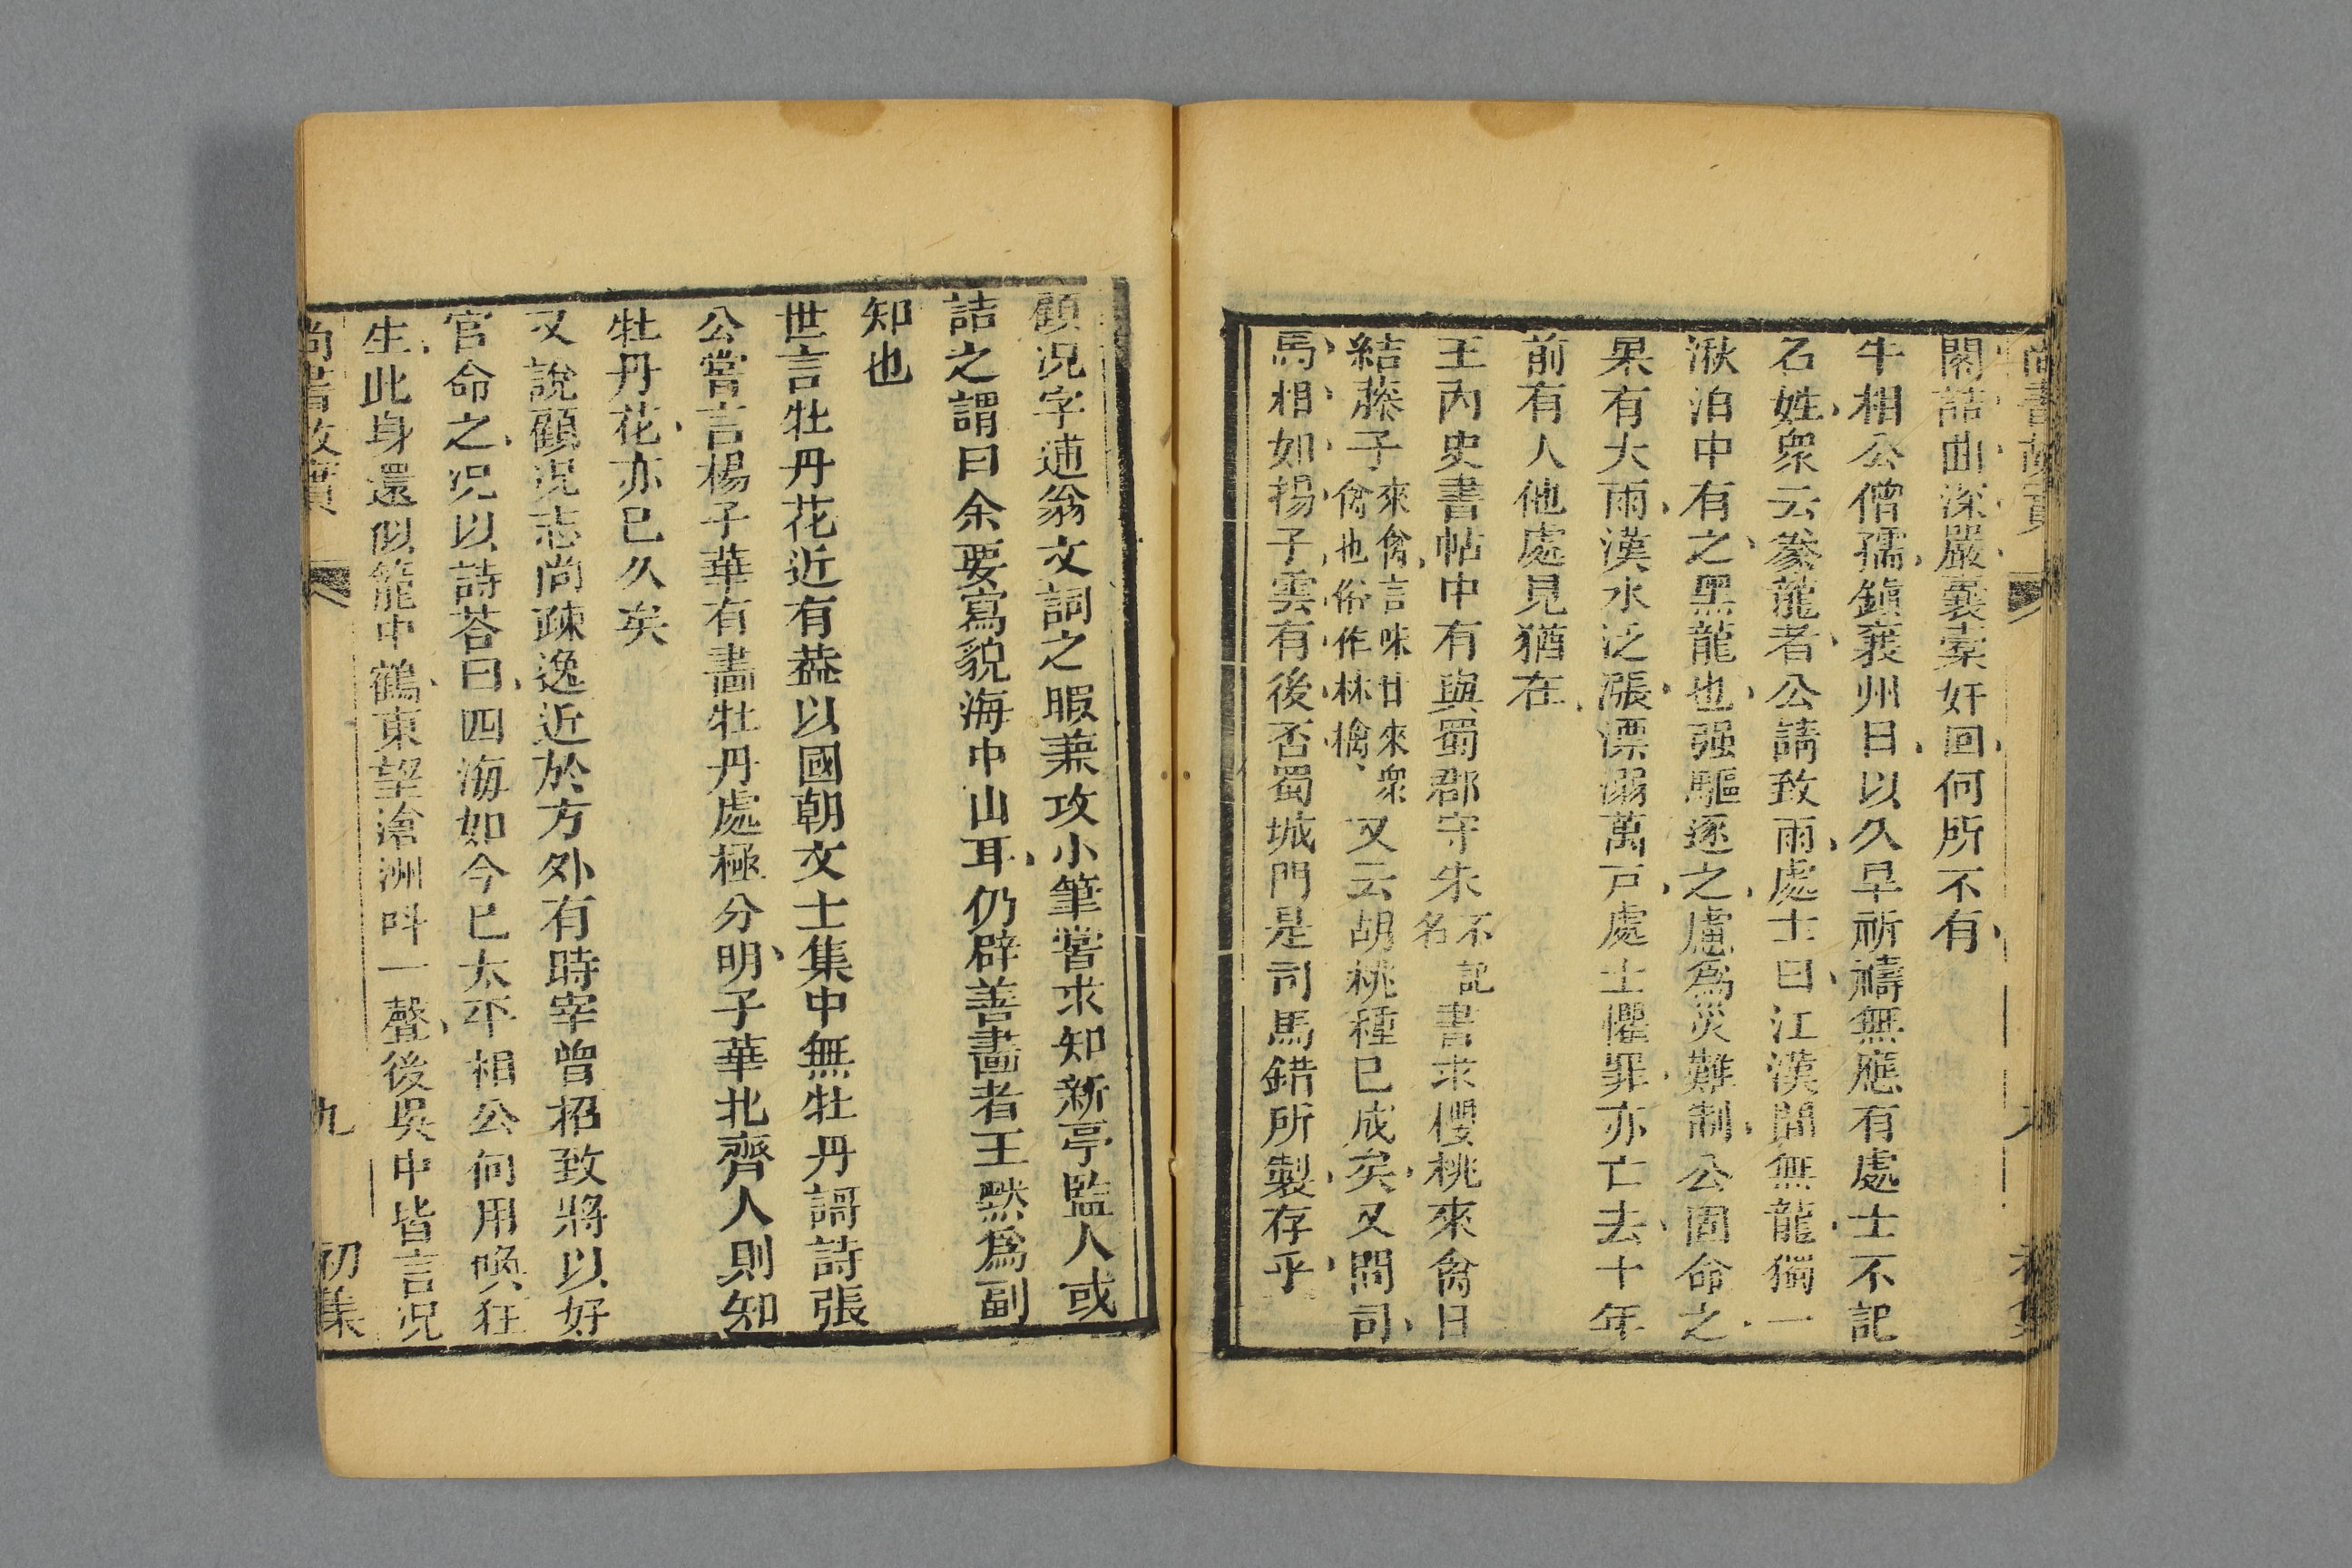 尚書故實
初集
閑詰曲深嚴囊橐奸回何所不有
牛相公僧孺鎮襄州日以久旱祈禱無應有處士不記
名姓衆云豢龍者公請致雨處士曰江漢間無龍獨一
湫泊中有之黑龍也强驅逐之慮爲災難制公固命之
果有大雨漢水泛漲漂溺萬戸處士懼罪亦亡去十年
前有人他處見猶在
王內史書帖中有與蜀郡守朱不記名書求櫻桃來禽日
結藤子來禽言味甘來衆禽也俗作林檎又云胡桃種已成矣又問司
馬相如揚子雲有後否蜀城門是司馬錯所製存乎
顧況字逋翁文詞之暇兼攻小筆嘗求知新亭監人或
詰之謂曰余要寫貌海中山耳仍辟善畫者王默爲副
知也
世言牡丹花近有葢以國朝文士集中無牡丹謌詩張
公嘗言楊子華有畵牡丹處極分明子華北齊人則知
牡丹花亦已久矣
又說顧況志尚疎逸近於方外有時宰曾招致將以好
官命之況以詩荅曰四海如今已太平相公何用喚狂
生此身還似籠中鶴東望滄洲呌一聲後吳中皆言況
尚書故實
九
初集